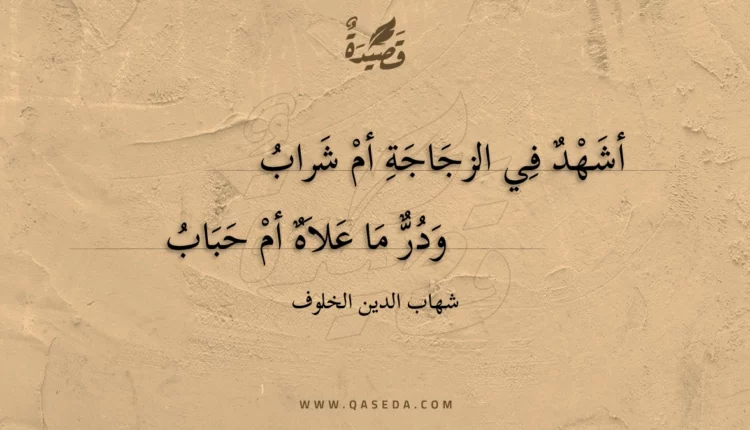 قَصِيْدَةٌ
أشَهْدٌ فِي الزجَاجَةِ أمْ شَرابُ
وَدُرٌّ مَا عَلاَهٌ أمْ حَبَابُ
شهاب الدين الخلوف
WWW.QASEDA.COM